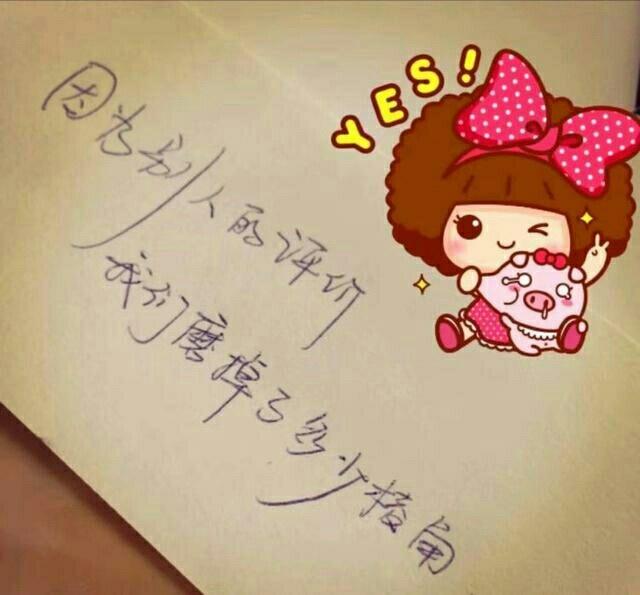 因为别人的评价
我们磨掉了多少棱角
YES!